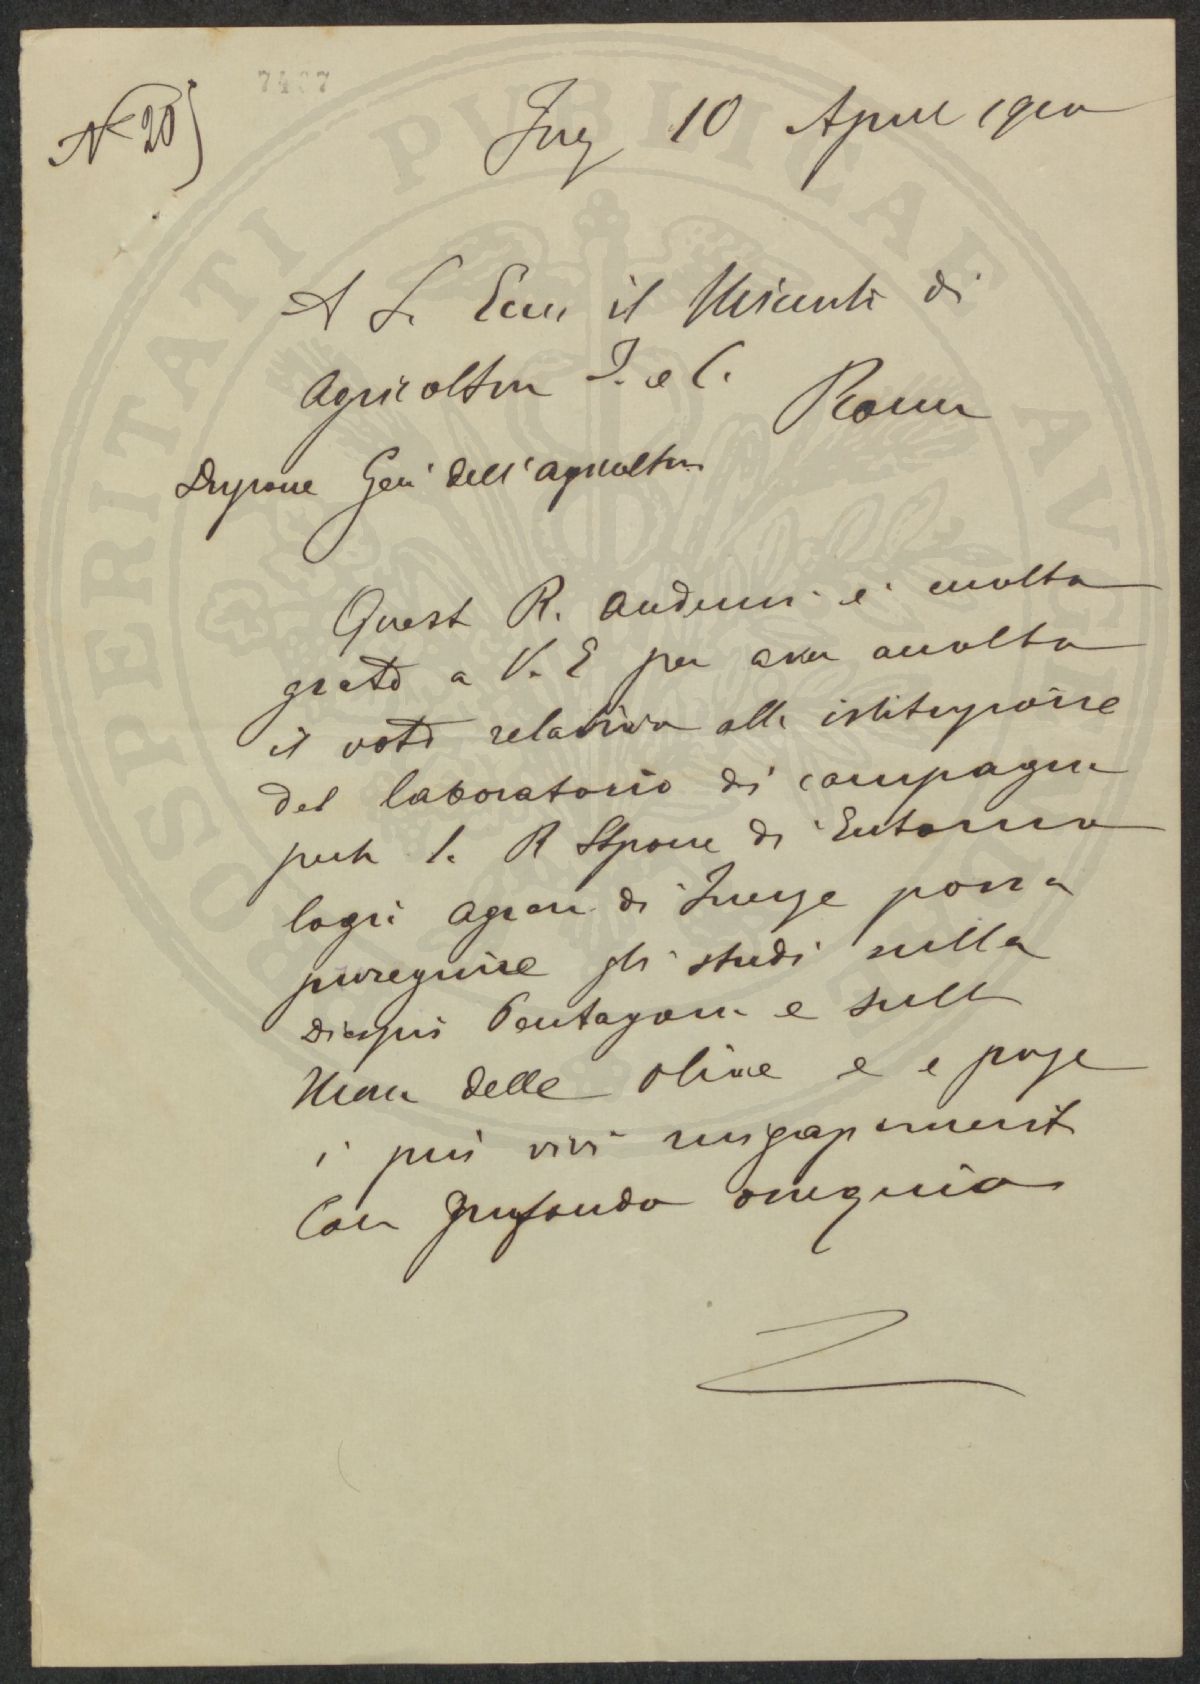 7407
N 205
Firenze 10 Aprile 1910
A S. Ecc. il Ministro di
Agricoltura I. e C.
Roma
Direzione Gen. dell'agricoltura
Questa R. Accademia è molto
grata a V. E per aver accolto
il voto relativo alla istituzione
del laboratorio di campagna
perché la R Stazione di Entomo
logia agraria di Firenze possa
proseguire gli studi sulla
Diaspis Pentagona e sulla
Mosca delle olive e porge
i più vivi ringraziamenti
Con profondo ossequio
PROSPERITATI PUBLICAE AUGENDAE